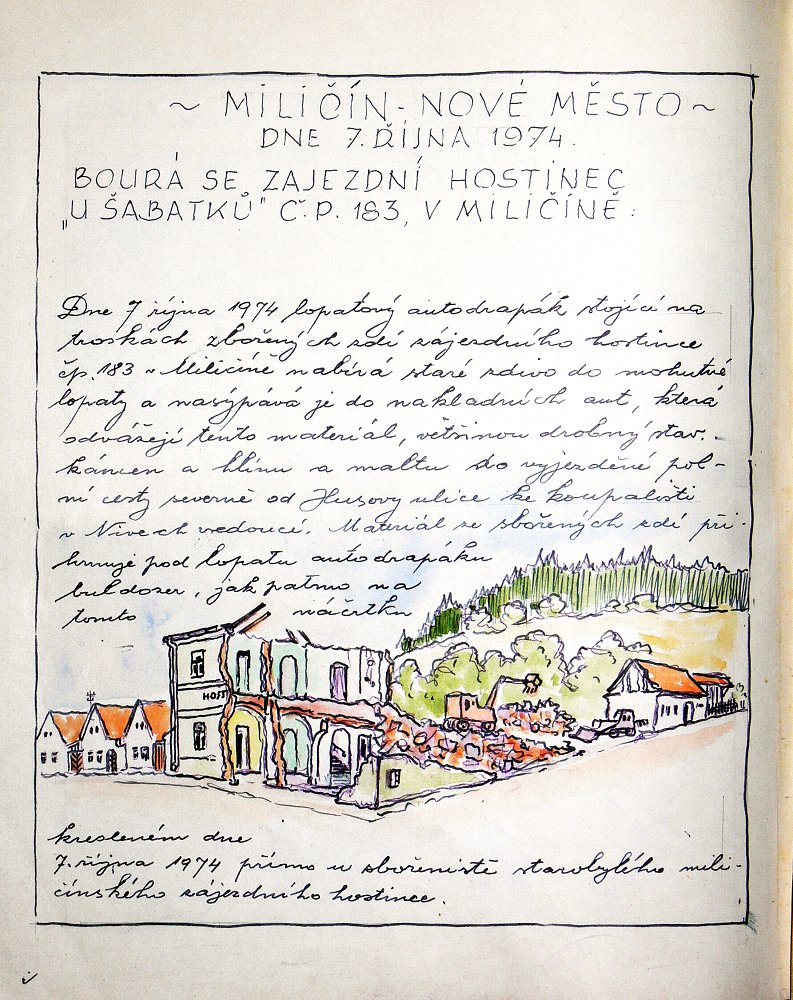 ~ MILIČÍN - NOVÉ MĚSTO ~
DNE 7. ŘÍJNA 1974.
BOURÁ SE ZAJEZDNÍ HOSTINEC
„U ŠABATKŮ" Č.P. 183, V MILIČÍNĚ:
Dne 7 října 1974 lopatový autodrapák stojící na
troskách zbořených zdí zájezdního hostince
čp. 183 v Miličíně nabírá staré zdivo do mohutné
lopaty a nasýpává je do nakladních aut, která
odvážejí tento materiál, většinou drobný stav.
káncen a hlínu a maltu do vyjezděné pol-
ní cesty severně od Husovy ulice ke koupališti
v Nivech vedoucí. Materiál ze zbořených zdí při-
hrnuje pod lopatu autodrapáku
buldozer, jak patrno na
tomto náčrtku
HOST
kresleném dne
7. října 1974 přímo u zbořeniště starobylého mili-
čínského zájezdního hostince.